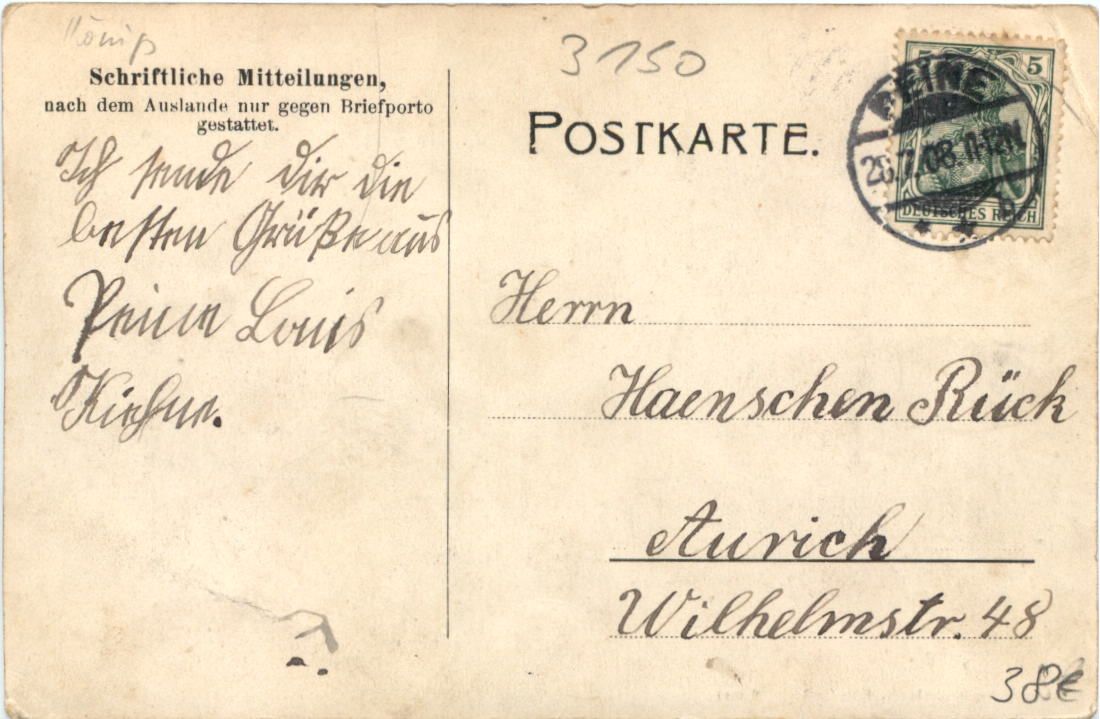 König
3150
Schriftliche Mitteilungen,
nach dem Auslande nur gegen Briefporto
gestattet.
POSTKARTE.
5
PEINE
26.7.08.11-12N.
DEUTSCHES REICH
Ich sende dir die
besten Grüße aus
Peine Louis
Kiehne.
Herrn
Haenschen Rück
Aurich
Wilhelmstr. 48
38€